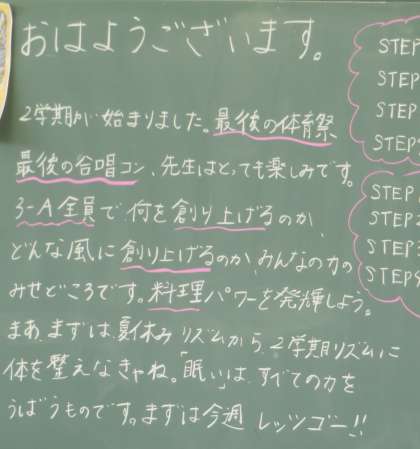 おはようございます。
2学期が始まりました。最後の体育祭
最後の合唱コン、先生はとっても楽しみです。
3-A全員で何を創り上げるのか、
どんな風に創り上げるのか、みんなの力の
みせどころです。料理パワーを発揮しよう。
まあ、まずは、夏休みリズムから、2学期リズムに
体を整えなきゃね。「眠い」は、すべての力を
うばうものです。まずは今週 レッツゴー!!
STEP
STEP
STEP
STEP
STEP
STEP
STEP
STEP